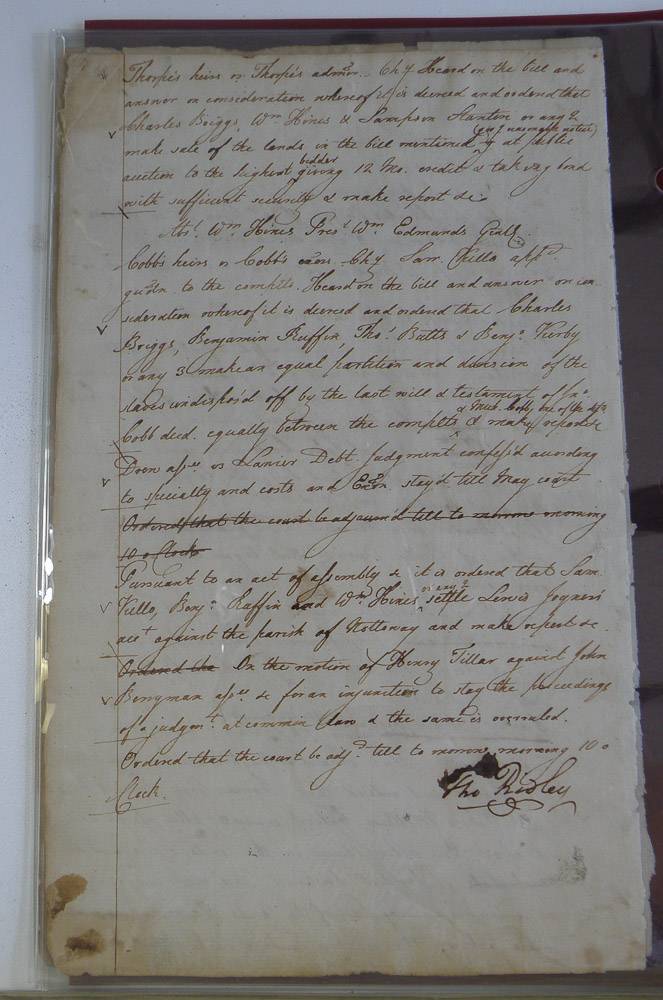 Thorpe's heirs vs Thorpe's admor. Chy Heard on the bill and
answer on consideration whereof it is decreed and ordered that
Charles Briggs, Wm Hines & Sampson Stanton or any 2
make sale of the lands in the bill mentioned (giv'g reasonable notice) at public
auction to the highest bidder giving 12 Mo. credit & taking bond
with sufficient security & make report &c
Abst. Wm Hines Prest Wm Edmunds Gent
Cobb's heirs vs Cobb's exors. Chy. Sam. Kello appd
guardn to the complts. Heard on the bill and answer on con
sideration whereof it is decreed and ordered that Charles
Briggs, Benjamin Ruffin, Thos Butts & Benja Kirby
or any 3 make an equal partition and division of the
slaves undispos'd off by the last will & testament of Jno
Cobb decd. equally between the complts & Mich. Cobb, one of the defts & make report &c
Doen assee vs Lanier Debt. Judgment confess'd according
to specialty and costs and Exon stay'd till May court
Ordered that the court be adjourned till to morrow morning
10 o Clock
Pursuant to an act of assembly &c it is ordered that Sam.
Kello, Benja Ruffin and Wm Hines or any 2 settle Lewis Joyner's
acct against the parish of Nottoway and make report &c.
Ordered the On the motion of Henry Tillar against John
Berryman assee &c for an injunction to stay the proceedings
of a judgmt at common law & the same is overruled.
Ordered that the court be adjd till to morrow morning 10 o
Clock.
Tho Ridley